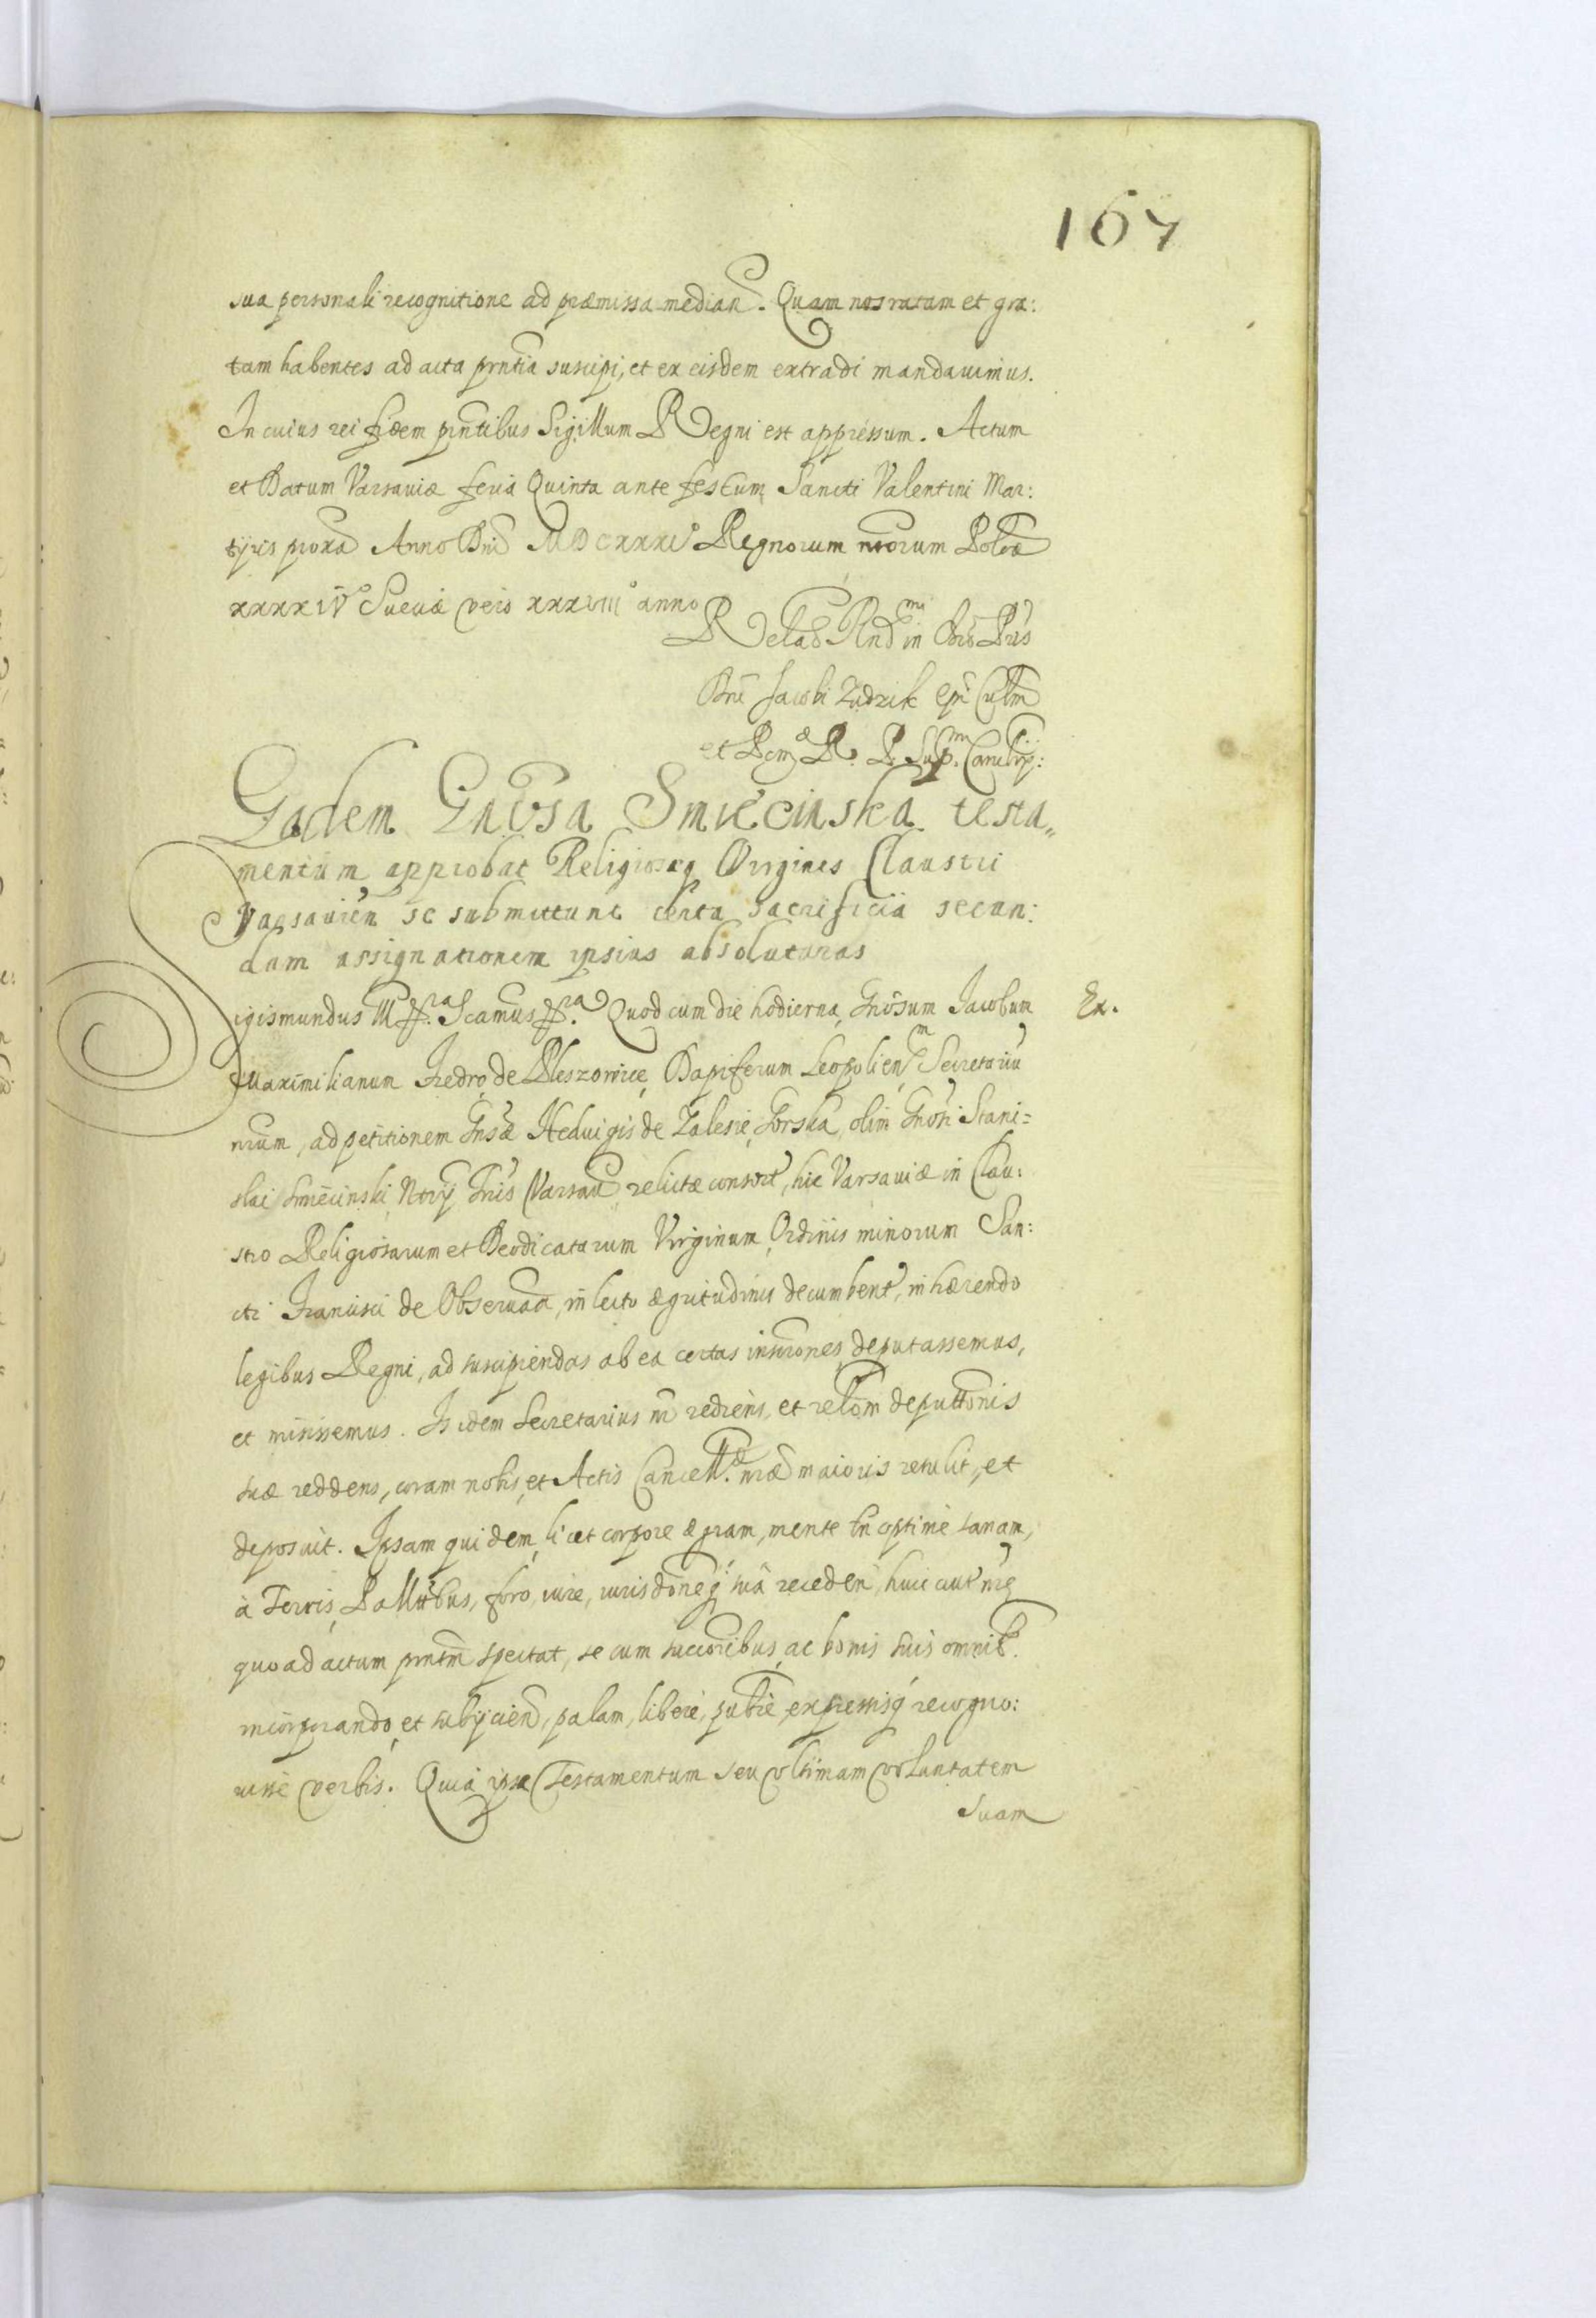 167
sua personali recognitione ad præmissa median. Quam nos ratam et gra:
tam habentes ad acta prñtia suscipi, et ex eisdem extradi mandavimus.
In cuius rei fidem prñtibus Sigillum Regni est appressum. Actum
et Datum Varsaviæ feria Quinta ante festum Sancti Valentini Mar:
tyris proxa Anno Dni MDCXXXI Regnorum nrorum Polæ
xxxxiv° Sueciæ vero xxxviii° anno
Relao Rndmi in Chro Pris
Dni Jacobi Zadzik Epi Culm
et Pom R. P. Supmi Cancelrij:
Eadem Gnosa Smiecinska testa„
mentum approbat Religiosæq Virgines Claustri
Varsavien se submittunt certa sacrificia secun:
dam assignationem ipsius absoluturas
Sigismundus III ffra Scamus ffra Quod cum die hodierna, Gnosum Jacobum Ex.
Maximilianum Fredro de Pleszowice Dapiferum Leopoliensem Secretariu
nrum, ad petitionem Gnsæ Hedvigis de Zalesie Gorska, olim Gnosi Stani=
slai Smiecinski Notrij Tris Varsavi relictæ consort, hic Varsaviæ in Clau:
stro Religiosarum et Deodicatarum Virginum Ordinis minorum San:
cti Francisci de Observaa, in lecto ægritudinis decumbent, inhærendo
legibus Regni, ad suscipiendas ab ea certas inscriones deputassemus,
et misissemus. Is idem Secretarius nr rediens, et relom deputtonis
suæ reddens, coram nobis, et Actis Cancell. nræ maioris retulit, et
deposuit. Ipsam quidem licet corpore ægram, mente tn optime sanam,
à Terris, Pallatibus, foro, iure, iurisdoneq sua receden huic aut nre
quo ad actum prntm spectat, se cum successoribus, ac bonis suis omnib.
incorporando, et subijciend, palam, libere, publice, expressisq recogno:
visse verbis. Quia ipsa Testamentum seu vltimam voluntatem
Suam